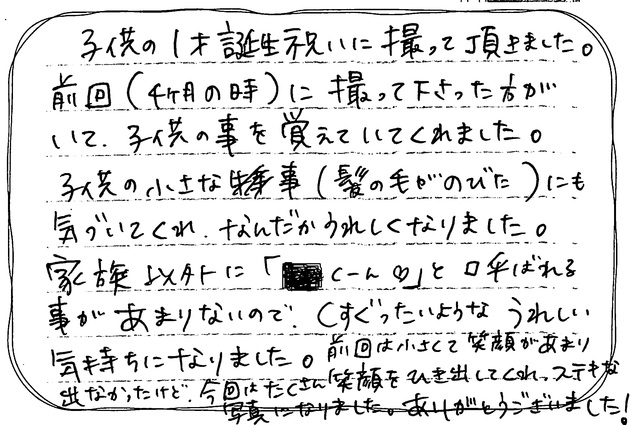 子供の1才誕生祝いに撮って頂きました。
前回(4ヶ月の時)に撮って下さった方が
いて、子供の事を覚えていてくれました。
子供の小さな事(髪の毛がのびた)にも
気づいてくれ、なんだかうれしくなりました。
家族以外に「くーん♡」と呼ばれる
事があまりないので、くすぐったいような うれしい
気持ちになりました。前回は小さくて笑顔があまり
出なかったけど、今回はたくさん笑顔をひき出してくれ、ステキな
写真になりました。ありがとうございました!